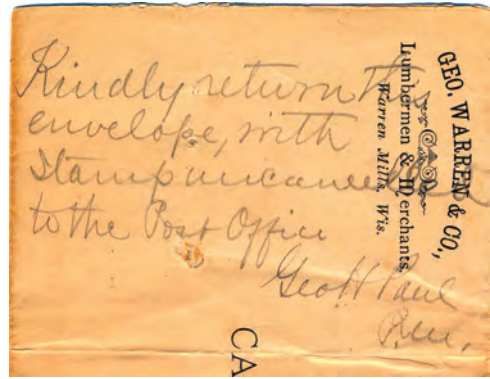 Kindly return this
envelope, with
Stamp uncancelled
to the Post Office
Geo H Paul
P.M.
GEO. WARREN & CO.,
Lumbermen & Merchants,
Warren Mills, Wis.
CA